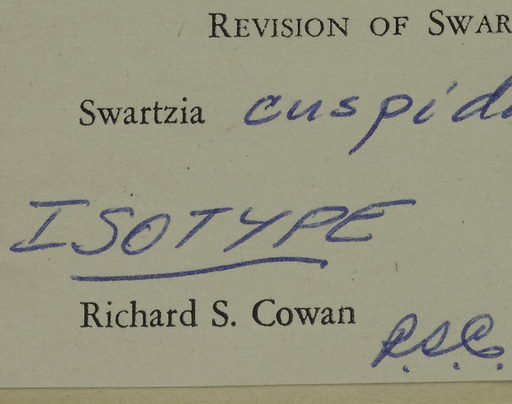 REVISION OF SWAR
Swartzia cuspid
ISOTYPE
Richard S. Cowan
R.S.C.